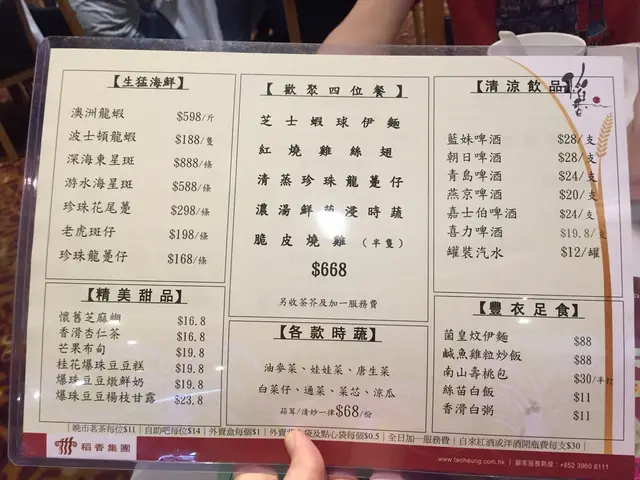 【生猛海鮮】
澳洲龍蝦 $598/斤
波士頓龍蝦 $188/隻
深海東星斑 $888/條
游水海星斑 $588/條
珍珠花尾躉 $298/條
老虎斑仔 $198/條
珍珠龍躉仔 $168/條
【精美甜品】
懷舊芝麻糊 $16.8
香滑杏仁茶 $16.8
芒果布甸 $19.8
桂花爆珠豆豆糕 $19.8
爆珠豆豆燉鮮奶 $19.8
爆珠豆豆楊枝甘露 $23.8
【歡聚四位餐】
芝士蝦球伊麵
紅燒雞絲翅
清蒸珍珠龍躉仔
濃湯鮮菌浸時蔬
脆皮燒雞（半隻）
$668
另收茶芥及加一服務費
【各款時蔬】
油麥菜、娃娃菜、唐生菜
白菜仔、通菜、菜芯、涼瓜
蒜茸/清炒一律$68/份
【清涼飲品】
藍妹啤酒 $28/支
朝日啤酒 $28/支
青島啤酒 $24/支
燕京啤酒 $20/支
嘉士伯啤酒 $24/支
喜力啤酒 $19.8/支
罐裝汽水 $12/罐
【豐衣足食】
菌皇炆伊麵 $88
鹹魚雞粒炒飯 $88
南山壽桃包 $30/半打
絲苗白飯 $11
香滑白粥 $11
|晚市茗茶每位$11|自助吧每位$14|外賣盒每個$1|外賣袋及點心袋每個$0.5|全日加一服務費|自來紅酒或洋酒開瓶費每支$30|
稻香集團
www.taoheung.com.hk | 顧客服務熱線：+852 3960 6111